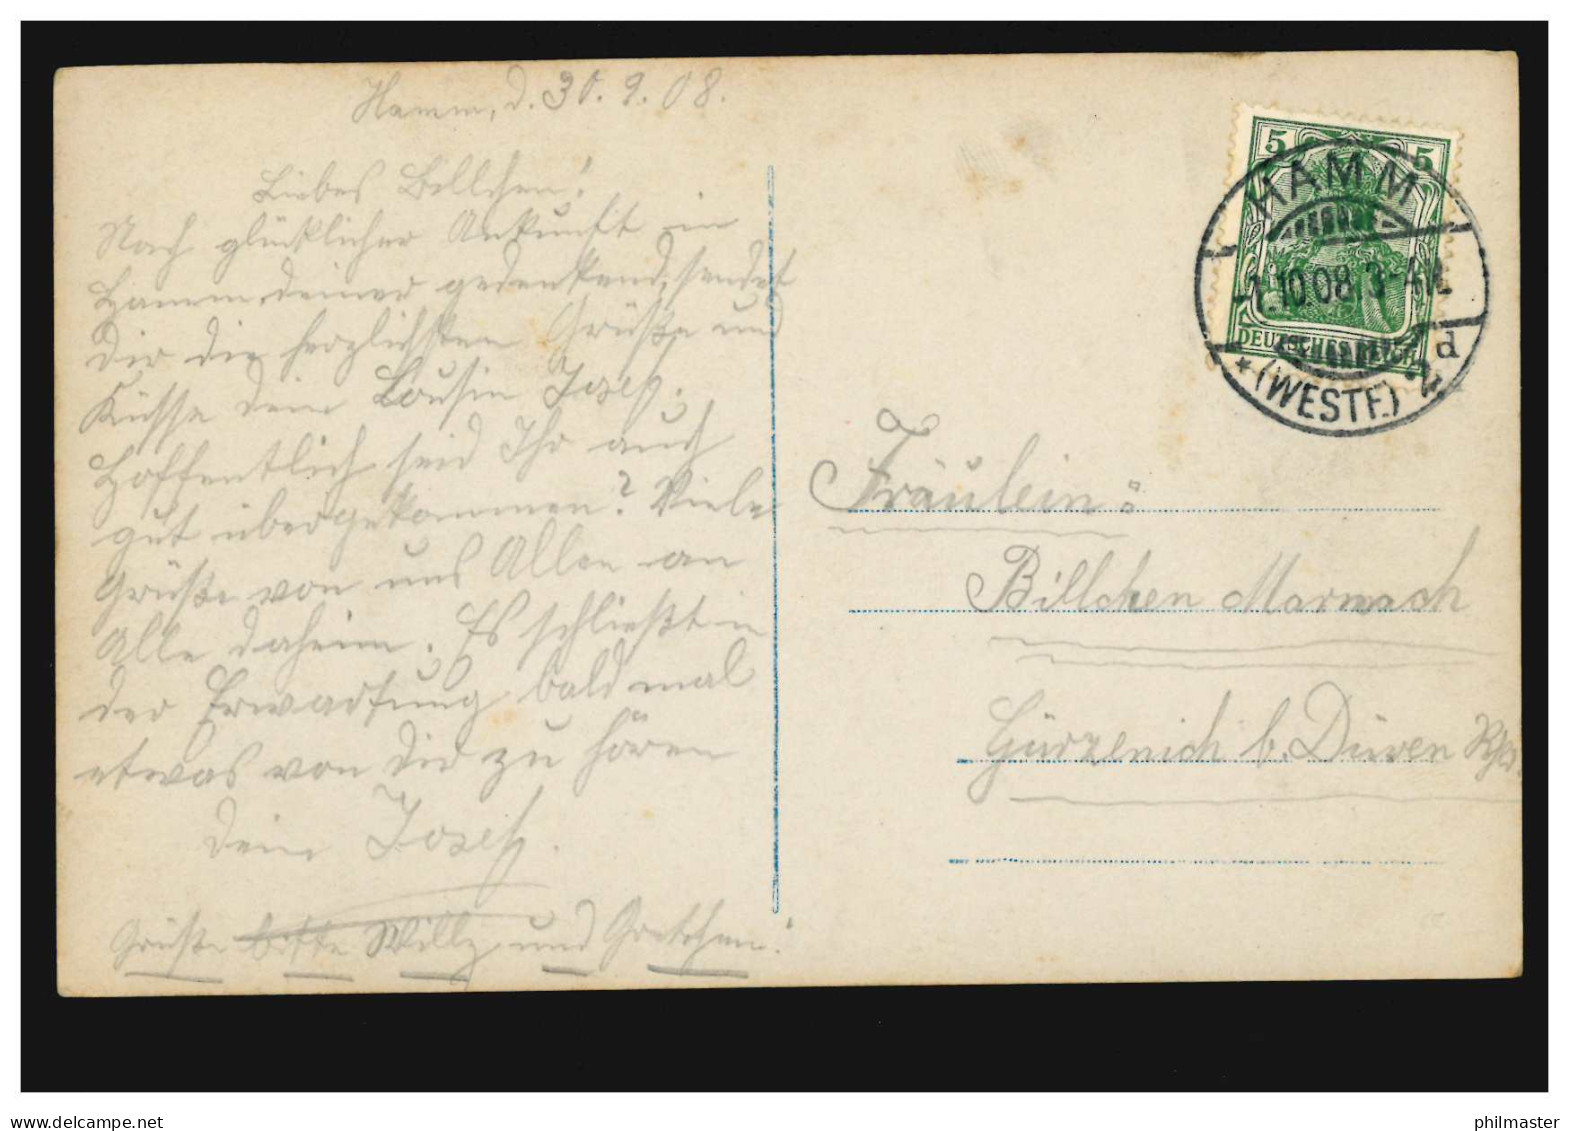 Hamm, d. 30. 9. 08.
Liebes Bellchen!
Nach glücklicher Ankunft in
Hamm, deiner gedenkend, sendet
Dir die herzlichsten Grüße und
Küsse dein Cousin Josef.
Hoffentlich seid Ihr auch
gut übergekommen? Viele
Grüße von uns Allen an
Alle daheim. Es schließt in
der Erwartung bald mal
etwas von Dir zu hören
Dein Josef.
Grüße bitte Willy und Gretchen!
5 5
DEUTSCHES REICH
HAMM
1.10.08 3-4N.
* (WESTF.) 2d
Fräulein:
Billchen Marnach
Gürzenich b. Düren Rhld.
delcampe.net
philmaster